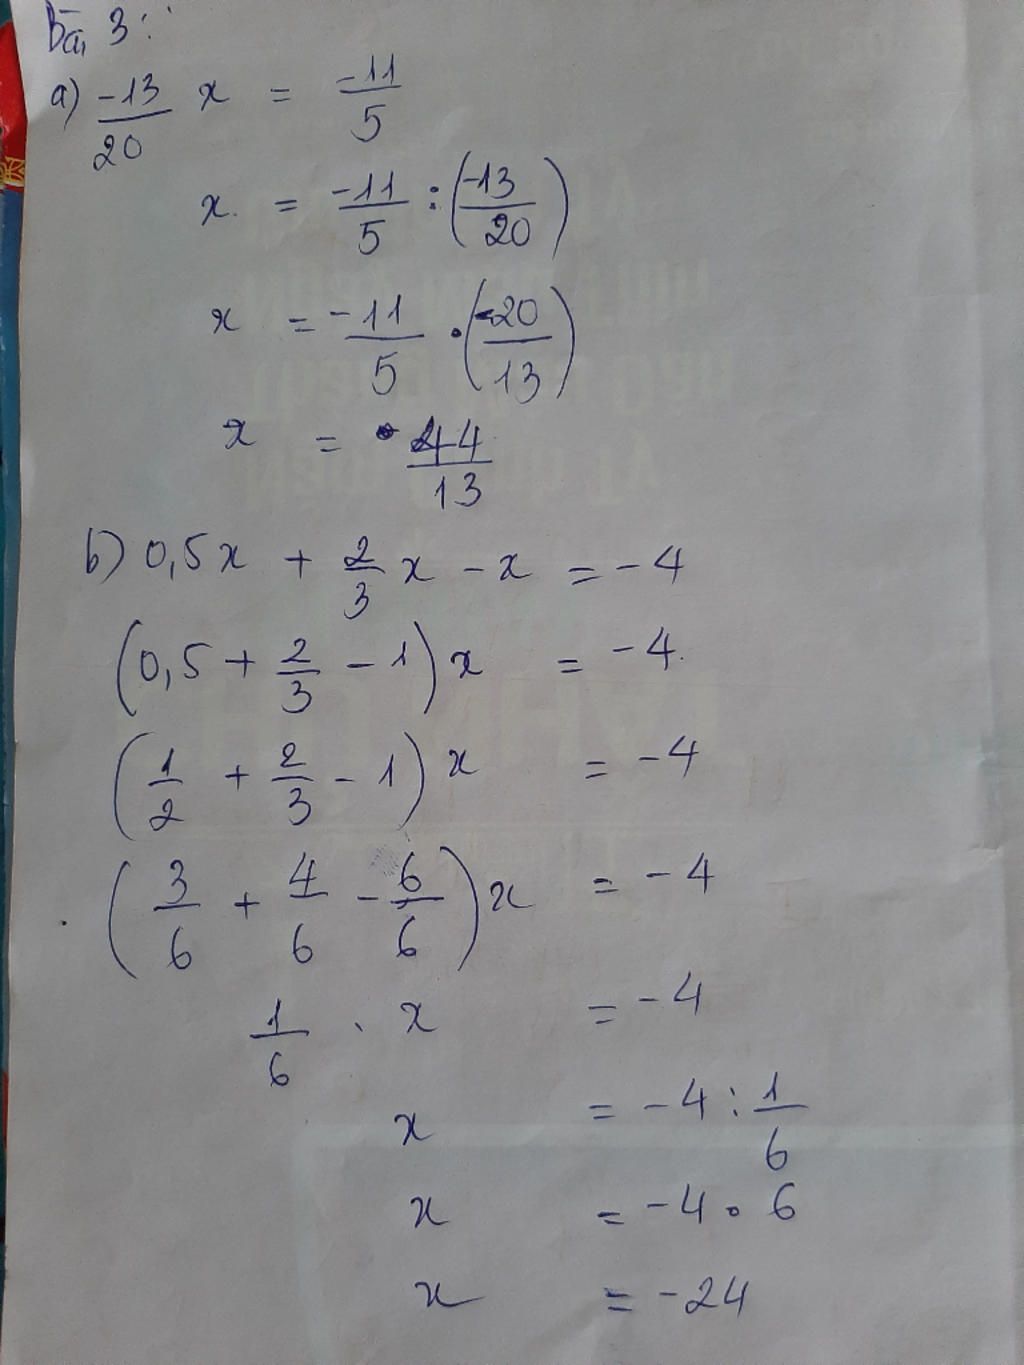 Bài 3:
a) -13/20 x = -11/5
x = -11/5 : (-13/20)
x = -11/5 . (-20/13)
x = 44/13
b) 0,5x + 2/3 x - x = -4
(0,5 + 2/3 - 1) x = -4
(1/2 + 2/3 - 1) x = -4
(3/6 + 4/6 - 6/6) x = -4
1/6 . x = -4
x = -4 : 1/6
x = -4 . 6
x = -24